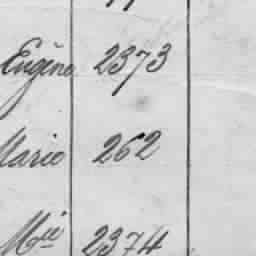 Eugène 2373
Marie 262
Mie 2374